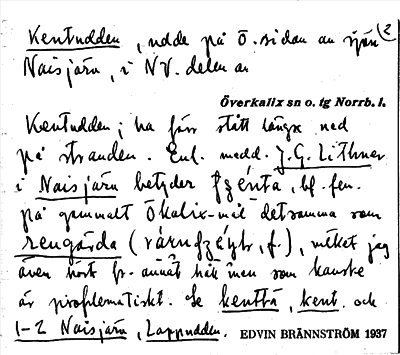 Kentudden, udde på Ö. sidan av sjön 2
Naisjärv, i NV. delen av
Överkalix sn o. tg Norrb. l.
Kentudden; ha förr stått längx ned
på stranden. Enl. medd. J.G. Lithner
i Naisjärv betyder, bf. fem.
på gammalt Ökalix-mål detsamma som
rengärda (, f.), vilket jag
även hört fr. annat håll men som kanske
är problematiskt. Se kenttä, kent. och
1-2 Naisjärv, Lappudden. EDVIN BRÄNNSTRÖM 1937